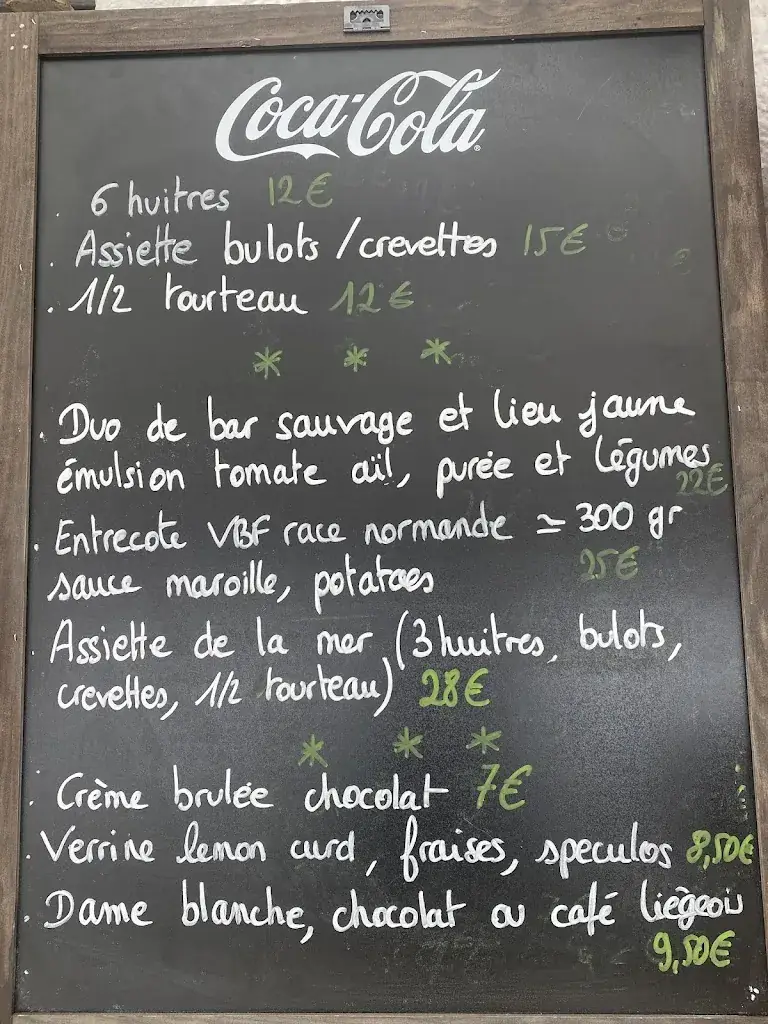 Coca-Cola
. 6 huitres 12€
. Assiette bulots /crevettes 15€
. 1/2 tourteau 12€
* * *
. Duo de bar sauvage et lieu jaune
émulsion tomate aïl, purée et légumes
22€
. Entrecote VBF race normande ≃ 300 gr
sauce maroille, potatoes 25€
. Assiette de la mer (3 huitres, bulots,
crevettes, 1/2 tourteau) 28€
* * *
. Crème brulée chocolat 7€
. Verrine lemon curd, fraises, speculos 8,50€
. Dame blanche, chocolat ou café liègeois
9,50€